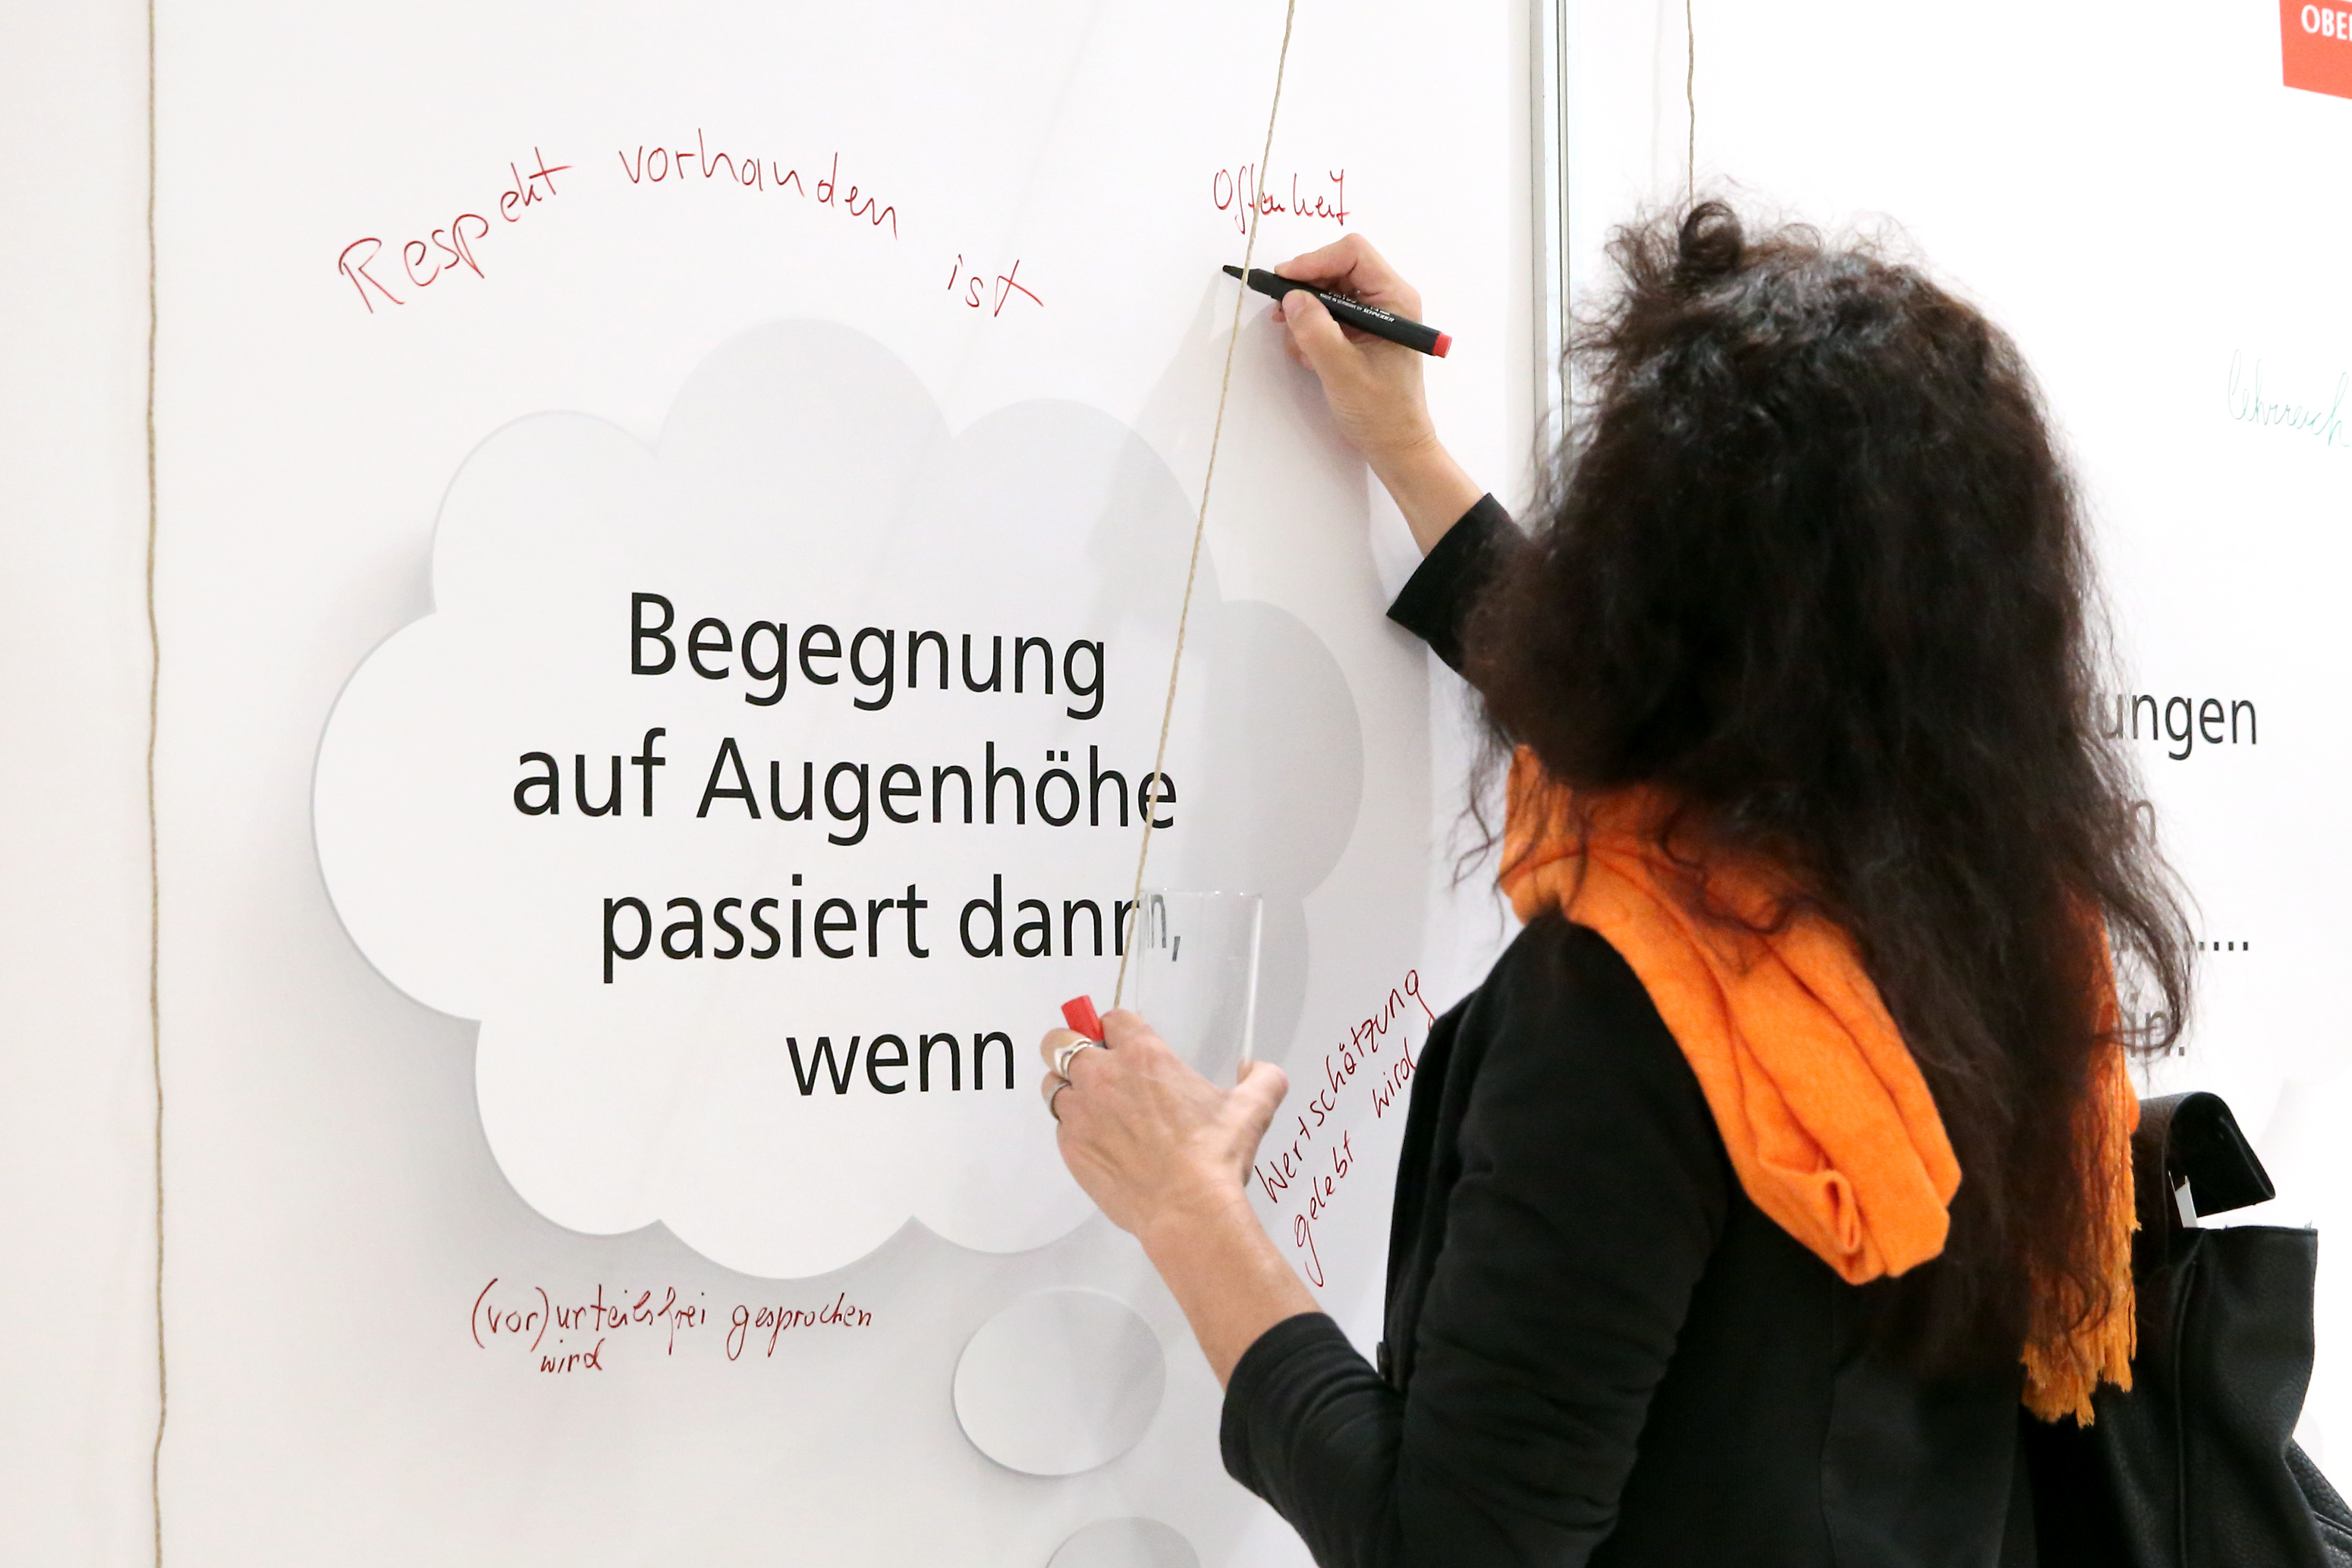 Respekt vorhanden ist
Offenheit
Begegnung
auf Augenhöhe
passiert dann,
wenn
Wertschätzung
gelebt wird
(vor)urteilsfrei gesprochen
wird
lehrreich
ungen
SCHNEIDER